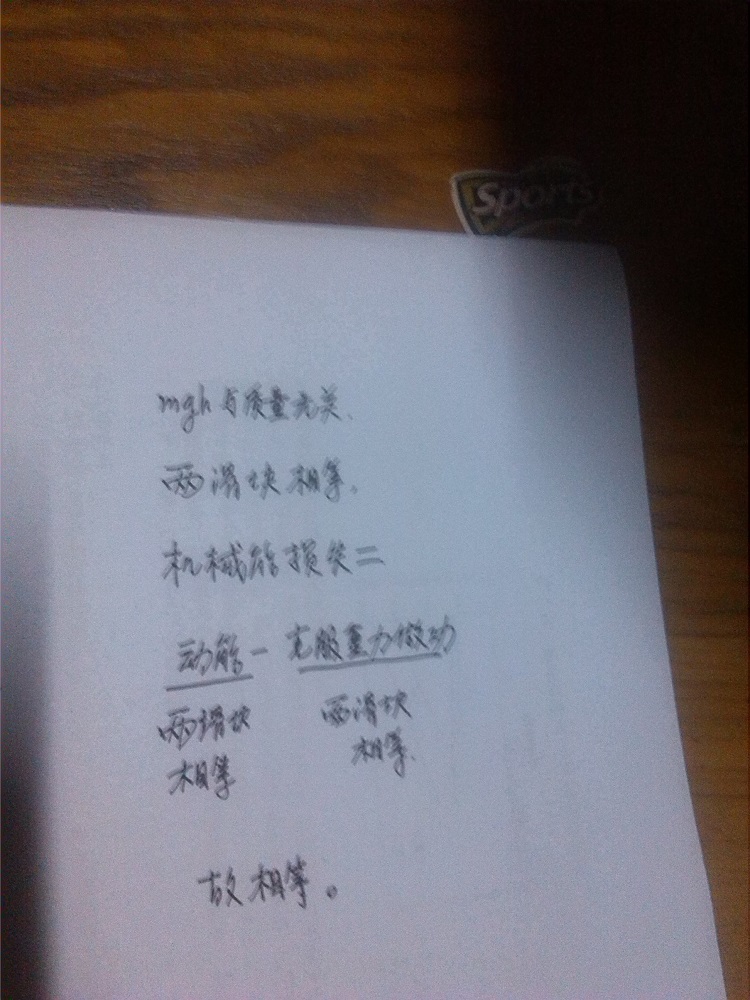 Sports
mgh与质量无关、
两滑块相等。
机械能损失=
动能-克服重力做功
两滑块 两滑块
相等 相等.
故相等。